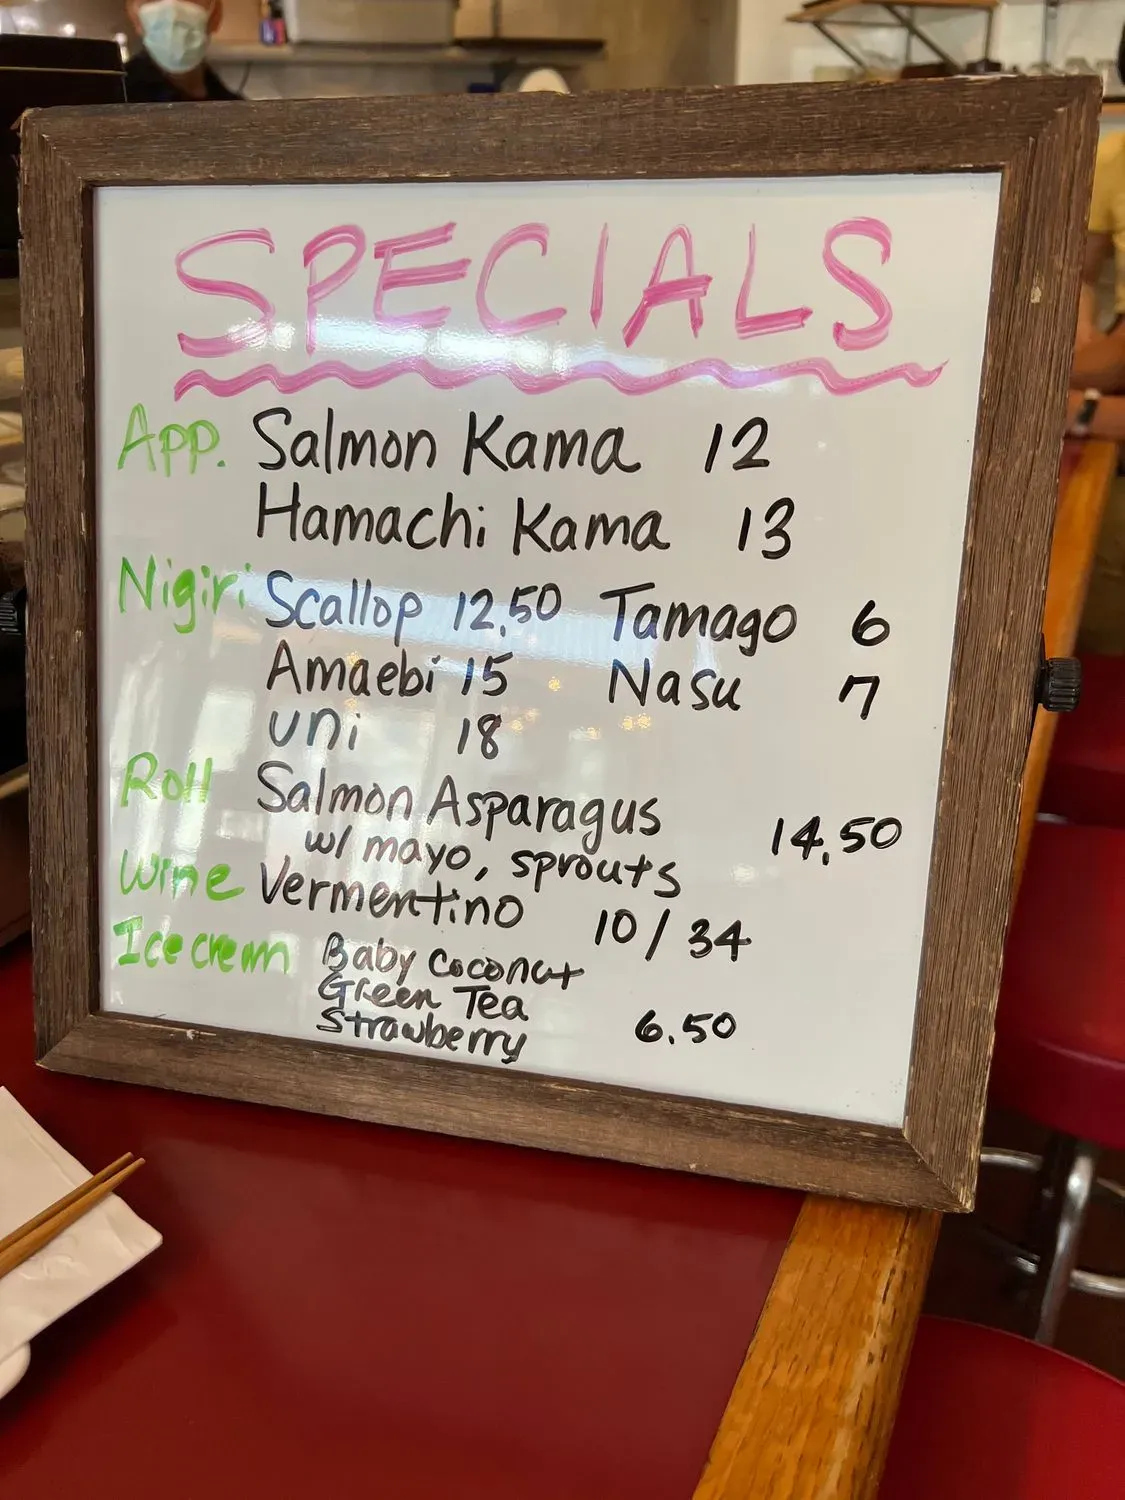 SPECIALS
App. Salmon Kama 12
Hamachi Kama 13
Nigiri Scallop 12.50 Tamago 6
Amaebi 15 Nasu 7
uni 18
Roll Salmon Asparagus
w/ mayo, sprouts 14.50
Wine Vermentino 10/34
Ice cream Baby Coconut
Green Tea
Strawberry 6.50